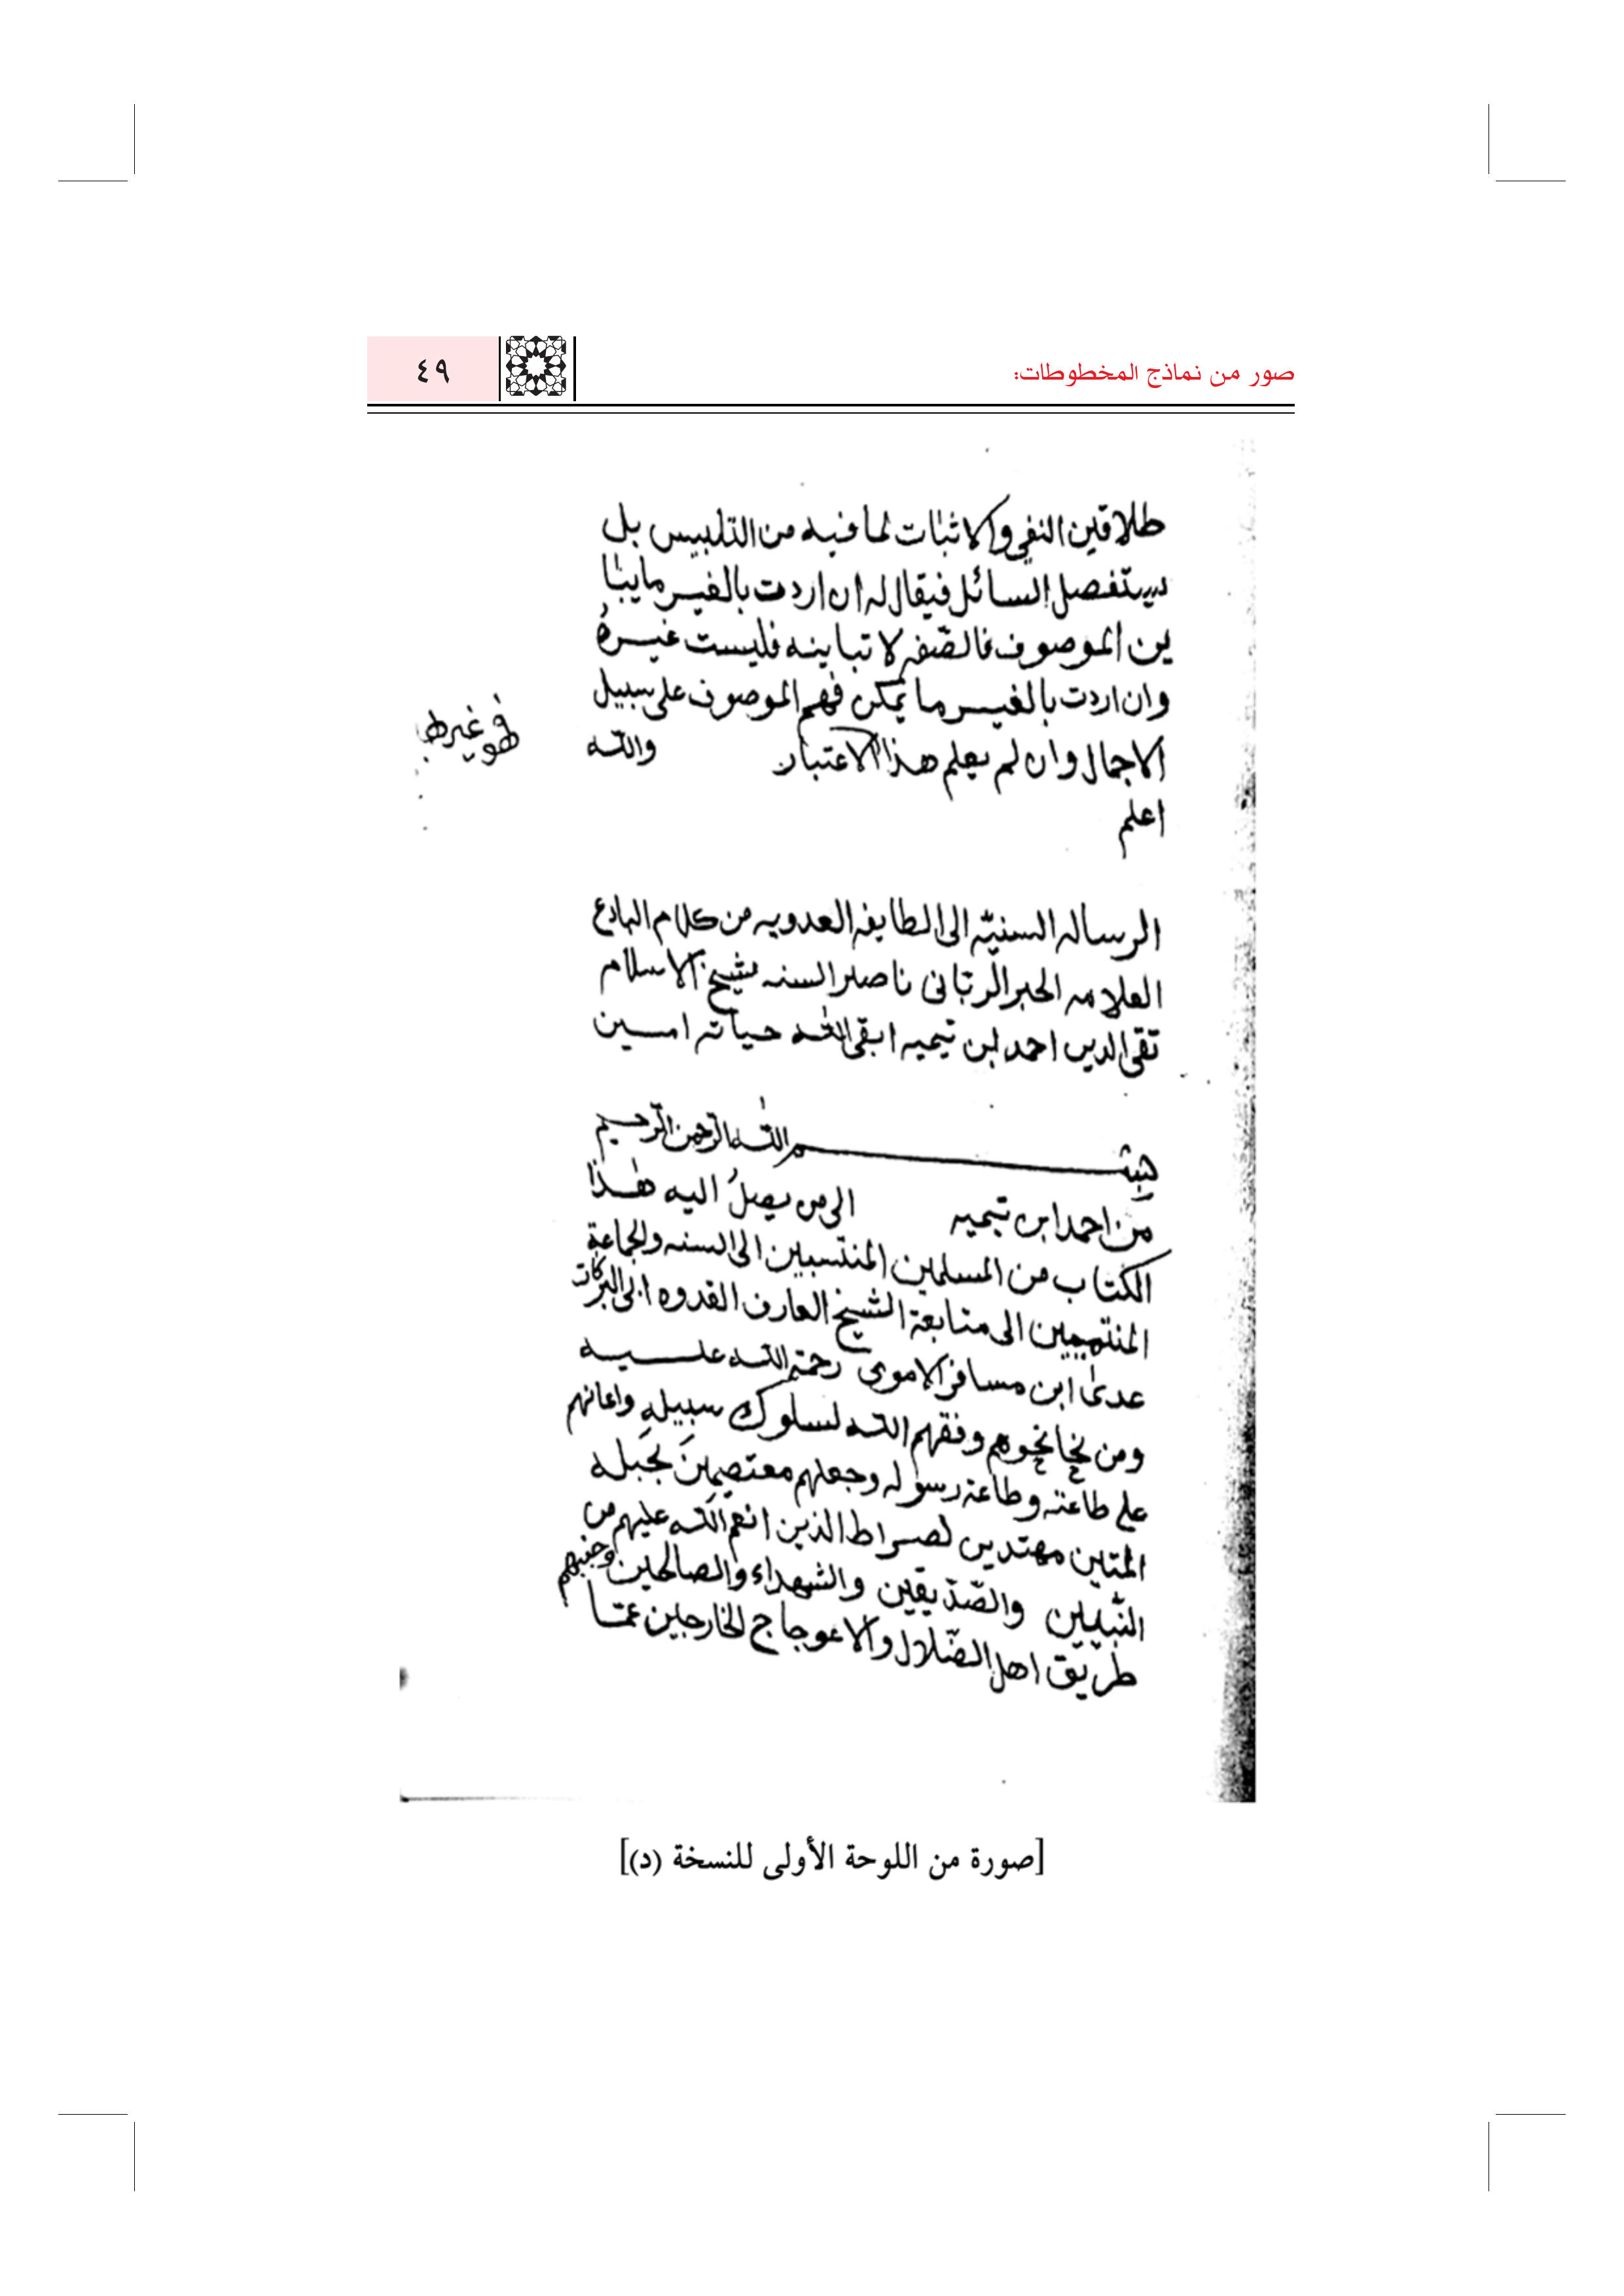 صور من نماذج المخطوطات:
٤٩
طلاقين النفي والاثبات لما فيه من التلبيس بل
يستفصل السائل فيقال له ان اردت بالغير ما يبا
ين الموصوف فالصفه لا تباينه فليست غيره
وان اردت بالغير ما يمكن فهم الموصوف على سبيل
الاجمال وان لم يعلم هذا الاعتبار والله
فهو غير
اعلم
الرساله السنيّه الى الطايفه العدويه من كلام البارع
العلامه الحبر الربّاني ناصر السنه شيخ الاسلام
تقي الدين احمد ابن تيميه ابقى الله حياته امين
بسم الله الرحمن الرحيم
من احمد ابن تيميه الى من يصلُ اليه هذا
الكتاب من المسلمين المنتسبين الى السنه والجماعة
المنتمين الى متابعة الشيخ العارف القدوه ابى البركات
عدى ابن مسافر الاموي رحمة الله عليه
ومن نحا نحوهم وفقهم الله لسلوك سبيله واعانهم
على طاعته وطاعة رسوله وجعلهم معتصمين بحبله
المتين مهتدين لصراط الذين انعم الله عليهم من
النبيين والصّدّيقين والشهداء والصالحين وجنبهم
طريق اهل الضّلال والاعوجاج الخارجين عمّا
[صورة من اللوحة الأولى للنسخة (د)]